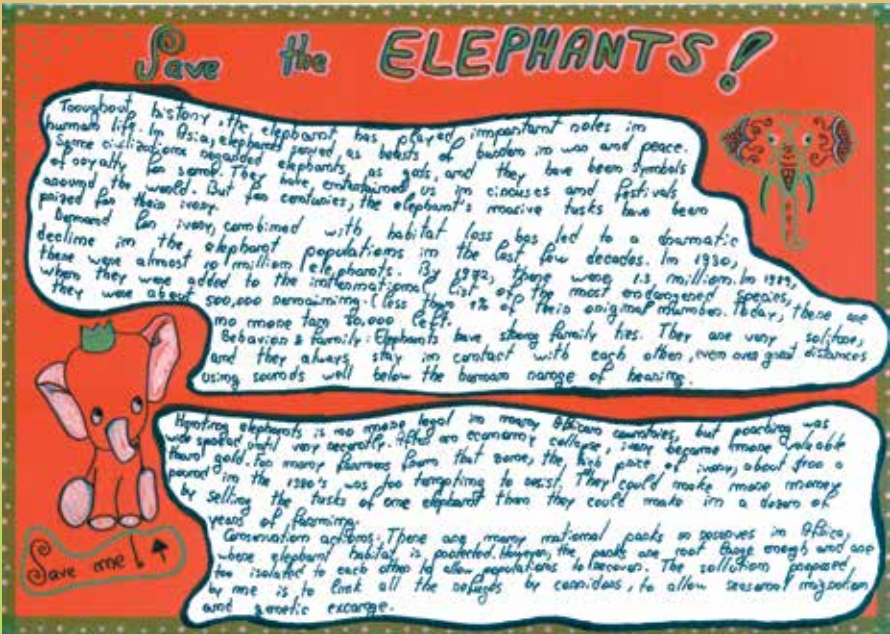 Save the ELEPHANTS!
Troughout history, the elephant has played important roles in
human life. In Asia, elephants served as beasts of burden in war and peace.
Some civilizations regarded elephants, as gods, and they have been symbols
of royalty for some. They have entertained us in circuses and festivals
around the world. But for centuries, the elephant's massive tusks have been
prized for their ivory.
Demand for ivory, combined with habitat loss has led to a dramatic
decline in the elephant populations in the last few decades. In 1930,
there were almost 10 million elephants. By 1992, there were 1.3 million. In 1989,
when they were added to the international list of the most endangered species,
they were about 500,000 remaining. (less than 1% of their original number. Today, there are
no more tan 30,000 left.
Behavior & family: Elephants have strong family ties. They are very
and they always stay in contact with each other, even over great distances
using sounds well below the human range of hearing.
Hunting elephants is no more legal in many African countries, but poaching was
wide spread until very recently. After an economy collapse, ivory became more valuable
than gold. For many farmers from that zone, the high price of ivory, about a
pound in the 1980's was too tempting to resist. They could make more money
by selling the tusks of one elephant than they could make in a dozen of
years of farming.
Conservation actions: There are many national parks or reserves in Africa,
where elephant habitat is protected. However, the parks are not large enough and are
too isolated to each other to allow populations to recover. The sollution proposed
by me is to link all the refuges by corridors, to allow seasonal migration
and genetic
Save me!